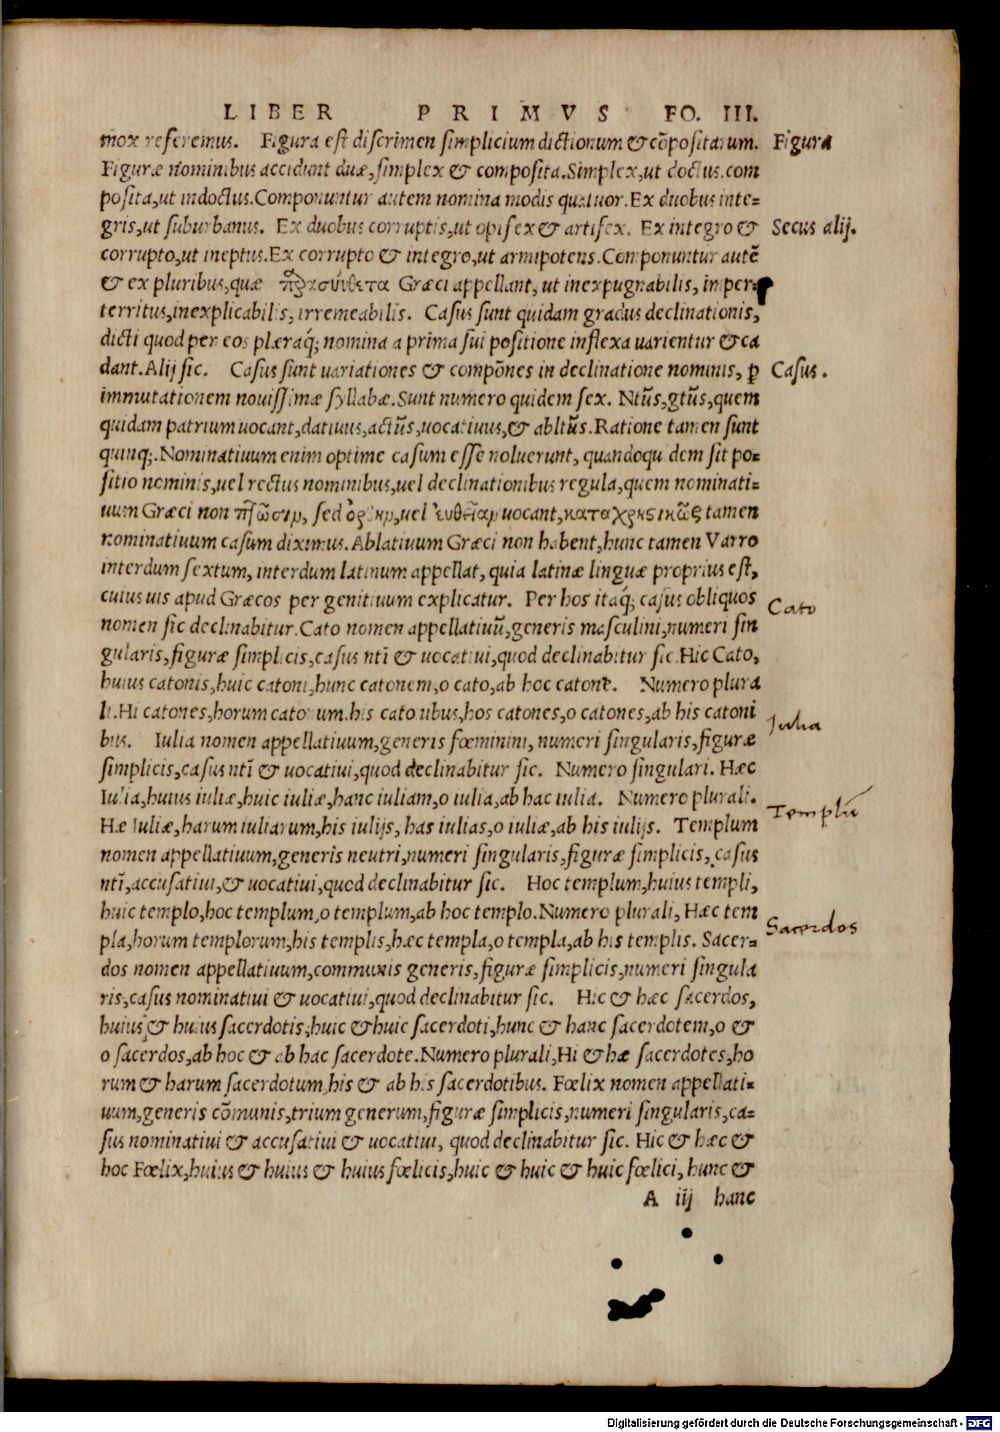 LIBER PRIMVS FO. III.
mox referemus. Figura est discrimen simplicium dictionum & cōpositarum. Figura
Figuræ nominibus accidunt duæ, simplex & composita. Simplex, ut doctus. com
posita, ut indoctus. Componuntur autem nomina modis quatuor. Ex duobus inte=
gris, ut suburbanus. Ex duobus corruptis, ut opifex & artifex. Ex integro & Secus alij.
corrupto, ut ineptus. Ex corrupto & integro, ut armipotens. Componuntur autē
& ex pluribus, quæ πρασύνθετα Græci appellant, ut inexpugnabilis, imper=
territus, inexplicabilis, irremeabilis. Casus sunt quidam gradus declinationis,
dicti quod per eos plæraq; nomina a prima sui positione inflexa uarientur & ca
dant. Alij sic. Casus sunt uariationes & compōnes in declinatione nominis, ꝑ Casus.
immutationem nouissimæ syllabæ. Sunt numero quidem sex. Ntūs, gtūs, quem
quidam patrium uocant, datiuus, actūs, uocatiuus, & abltūs. Ratione tamen sunt
quinq;. Nominatiuum enim optime casum esse noluerunt, quandoqu dem sit po=
sitio nominis, uel rectus nominibus, uel declinationibus regula, quem nominati=
uum Græci non πτῶσιν, sed ὀρθὴν, uel εὐθεῖαν uocant, καταχρηστικῶς tamen
nominatiuum casum diximus. Ablatiuum Græci non habent, hunc tamen Varro
interdum sextum, interdum latinum appellat, quia latinæ linguæ proprius est,
cuius uis apud Græcos per genitiuum explicatur. Per hos itaq; casus obliquos
Cato
nomen sic declinabitur. Cato nomen appellatiuū, generis masculini, numeri sin
gularis, figuræ simplicis, casus ntī & uocatiui, quod declinabitur sic. Hic Cato,
huius catonis, huic catoni, hunc catonem, o cato, ab hoc catone. Numero plura
li. Hi catones, horum catonum. his catonibus, hos catones, o catones, ab his catoni
Julia
bus. Iulia nomen appellatiuum, generis fœminini, numeri singularis, figuræ
simplicis, casus ntī & uocatiui, quod declinabitur sic. Numero singulari. Hæc
Iulia, huius iuliæ, huic iuliæ, hanc iuliam, o iulia, ab hac iulia. Numero plurali.
Templū
Hæ Iuliæ, harum iuliarum, his iulijs, has iulias, o iuliæ, ab his iulijs. Templum
nomen appellatiuum, generis neutri, numeri singularis, figuræ simplicis, casus
ntī, accusatiui, & uocatiui, quod declinabitur sic. Hoc templum, huius templi,
huic templo, hoc templum, o templum, ab hoc templo. Numero plurali, Hæc tem
Sacerdos
pla, horum templorum, his templis, hæc templa, o templa, ab his templis. Sacer=
dos nomen appellatiuum, communis generis, figuræ simplicis, numeri singula
ris, casus nominatiui & uocatiui, quod declinabitur sic. Hic & hæc sacerdos,
huius & huius sacerdotis, huic & huic sacerdoti, hunc & hanc sacerdotem, o &
o sacerdos, ab hoc & ab hac sacerdote. Numero plurali, Hi & hæ sacerdotes, ho
rum & harum sacerdotum, his & ab his sacerdotibus. Fœlix nomen appellati=
uum, generis cōmunis, trium generum, figuræ simplicis, numeri singularis, ca=
sus nominatiui & accusatiui & uocatiui, quod declinabitur sic. Hic & hæc &
hoc Fœlix, huius & huius & huius fœlicis, huic & huic & huic fœlici, hunc &
A iij hanc
Digitalisierung gefördert durch die Deutsche Forschungsgemeinschaft - DFG